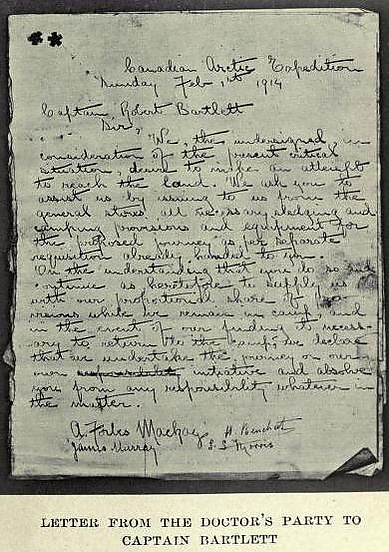 Canadian Arctic Expedition
Sunday Feb 1st 1914
Captain Robert Bartlett
Sir,
We, the undersigned in
consideration of the present critical
situation, desire to make an attempt
to reach the land. We ask you to
assist us by issuing to us from the
general stores all necessary sledging and
camping provisions and equipment for
the proposed journey as per separate
requisition already handed to you.
On the understanding that you do so and
continue as heretofore to supply us
with our proportional share of pro-
visions while we remain in camp, and
in the event of our finding it necess-
ary to return to the camp, we declare
that we undertake the journey on our
own initiative and absolve
you from any responsibility whatever in
the matter.
A. Forbes Mackay H. Beuchat
James Murray S. S. Morris
LETTER FROM THE DOCTOR'S PARTY TO
CAPTAIN BARTLETT